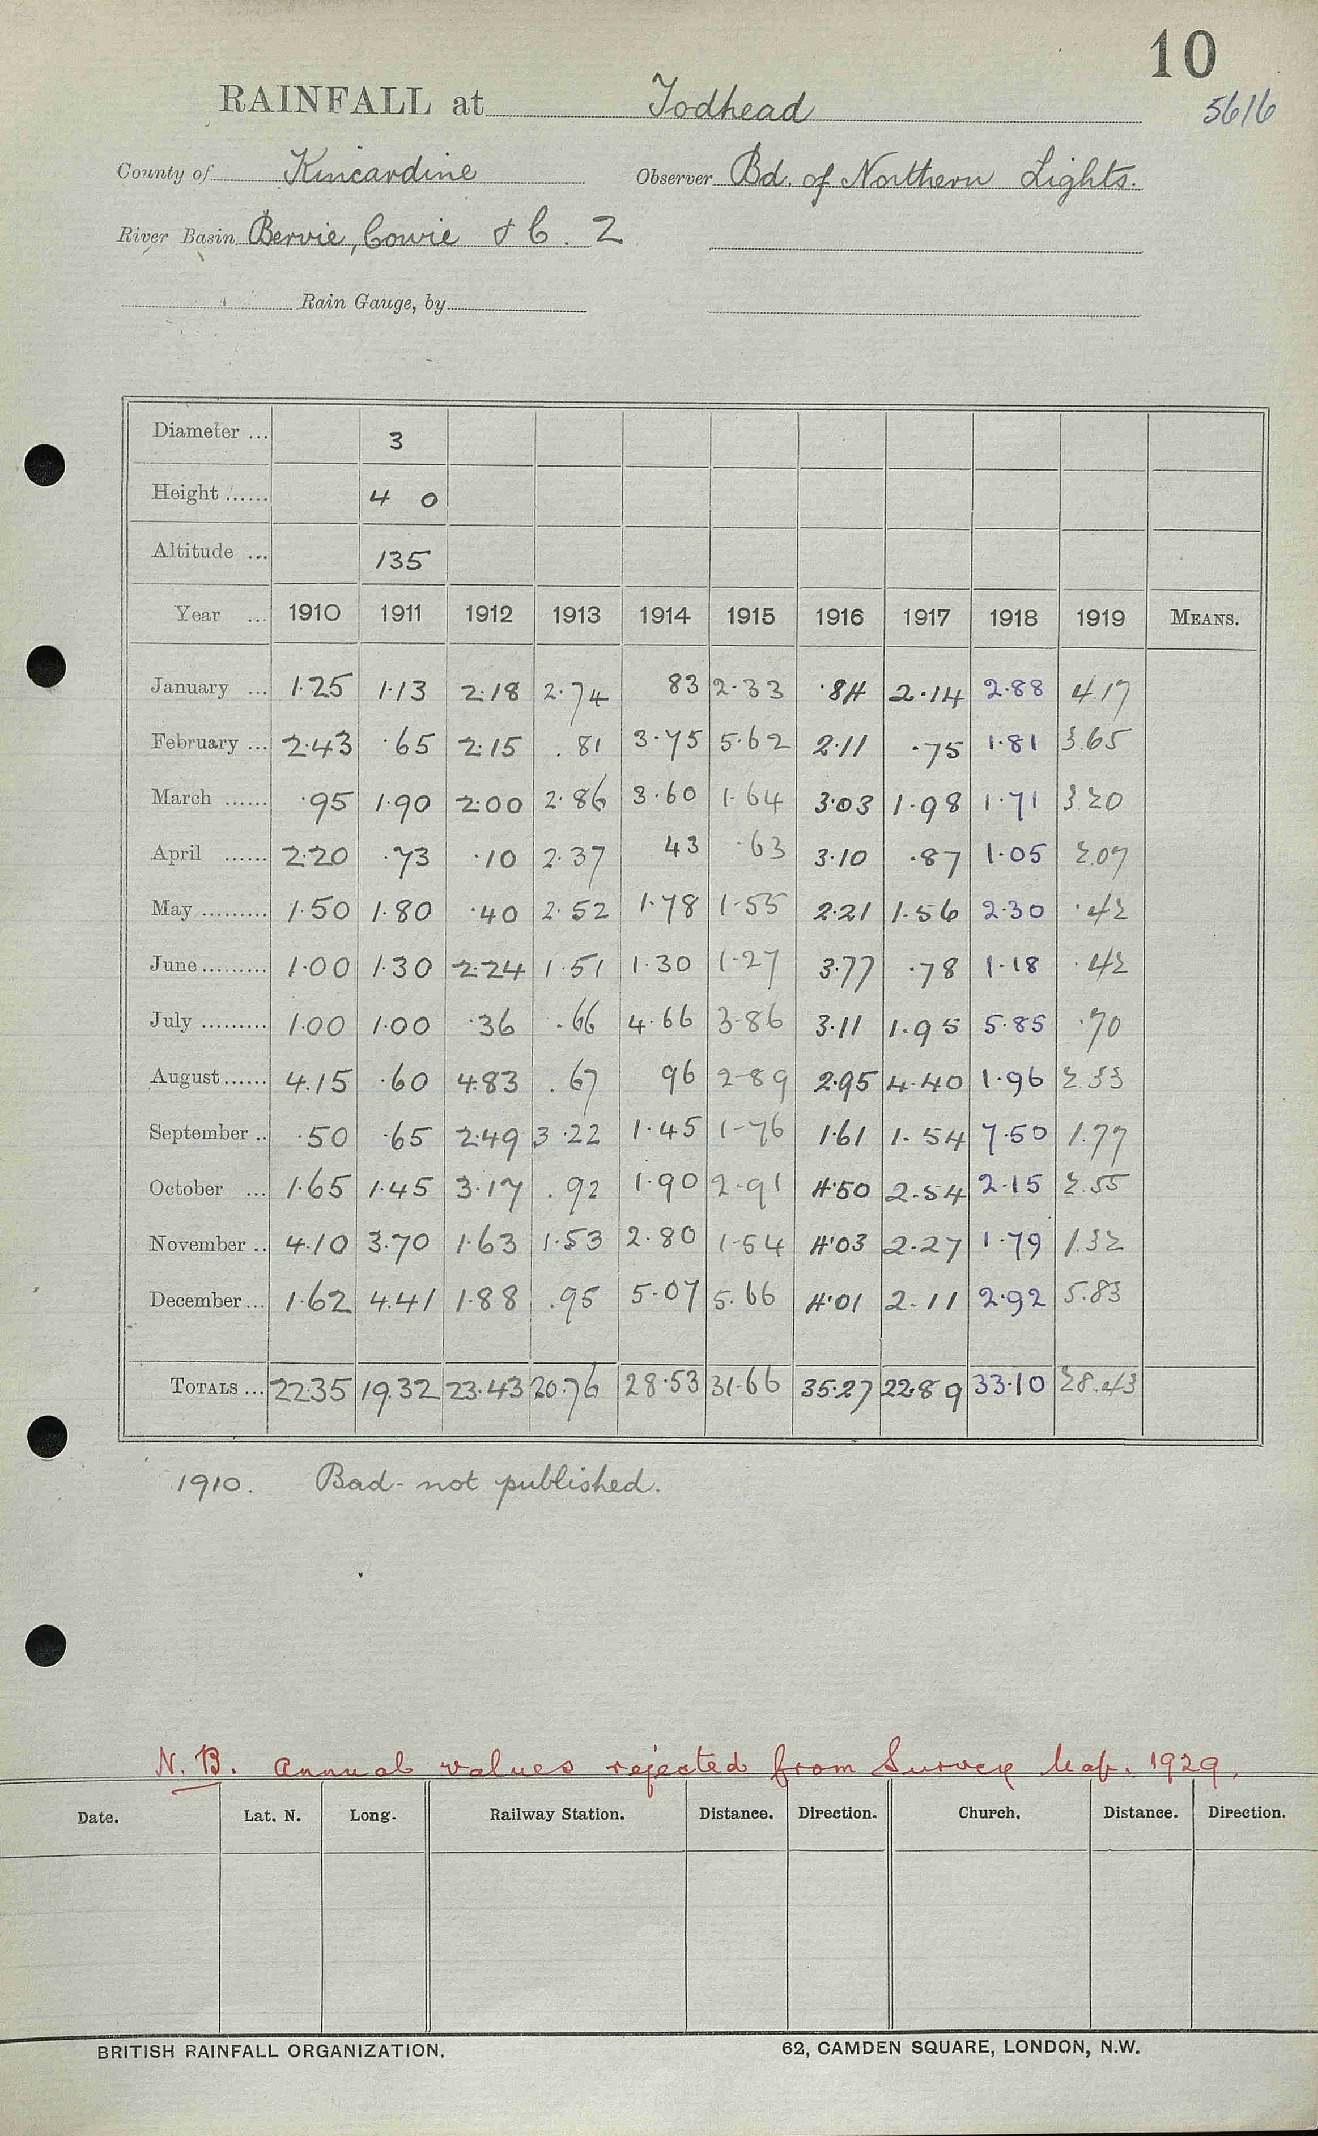 10
RAINFALL at Todhead 5616
County of Kincardine Observer Bd. of Northern Lights.
River Basin Bervie, Cowie & C. 2
Rain Gauge, by
Diameter ... 3
Height ...... 4 0
Altitude ... 135
Year ... 1910 1911 1912 1913 1914 1915 1916 1917 1918 1919 MEANS.
January ... 1.25 1.13 2.18 2.74 83 2.33 .84 2.14 2.88 4.17
February ... 2.43 .65 2.15 .81 3.75 5.62 2.11 .75 1.81 3.65
March ...... .95 1.90 2.00 2.86 3.60 1.64 3.03 1.98 1.71 3.20
April ...... 2.20 .73 .10 2.37 43 .63 3.10 .87 1.05 2.07
May ......... 1.50 1.80 .40 2.52 1.78 1.55 2.21 1.56 2.30 .42
June......... 1.00 1.30 2.24 1.51 1.30 1.27 3.77 .78 1.18 .42
July ......... 1.00 1.00 .36 .66 4.66 3.86 3.11 1.95 5.85 .70
August...... 4.15 .60 4.83 .67 96 2.89 2.95 4.40 1.96 2.33
September .. .50 .65 2.49 3.22 1.45 1.76 1.61 1.54 7.50 1.77
October ... 1.65 1.45 3.17 .92 1.90 2.91 4.50 2.54 2.15 2.55
November .. 4.10 3.70 1.63 1.53 2.80 1.54 4.03 2.27 1.79 1.32
December ... 1.62 4.41 1.88 .95 5.07 5.66 4.01 2.11 2.92 5.83
TOTALS ... 22.35 19.32 23.43 20.76 28.53 31.66 35.27 22.89 33.10 28.43
1910. Bad - not published.
N.B. Annual values rejected from Survey Map. 1929.
Date. Lat. N. Long. Railway Station. Distance. Direction. Church. Distance. Direction.
BRITISH RAINFALL ORGANIZATION. 62, CAMDEN SQUARE, LONDON, N.W.